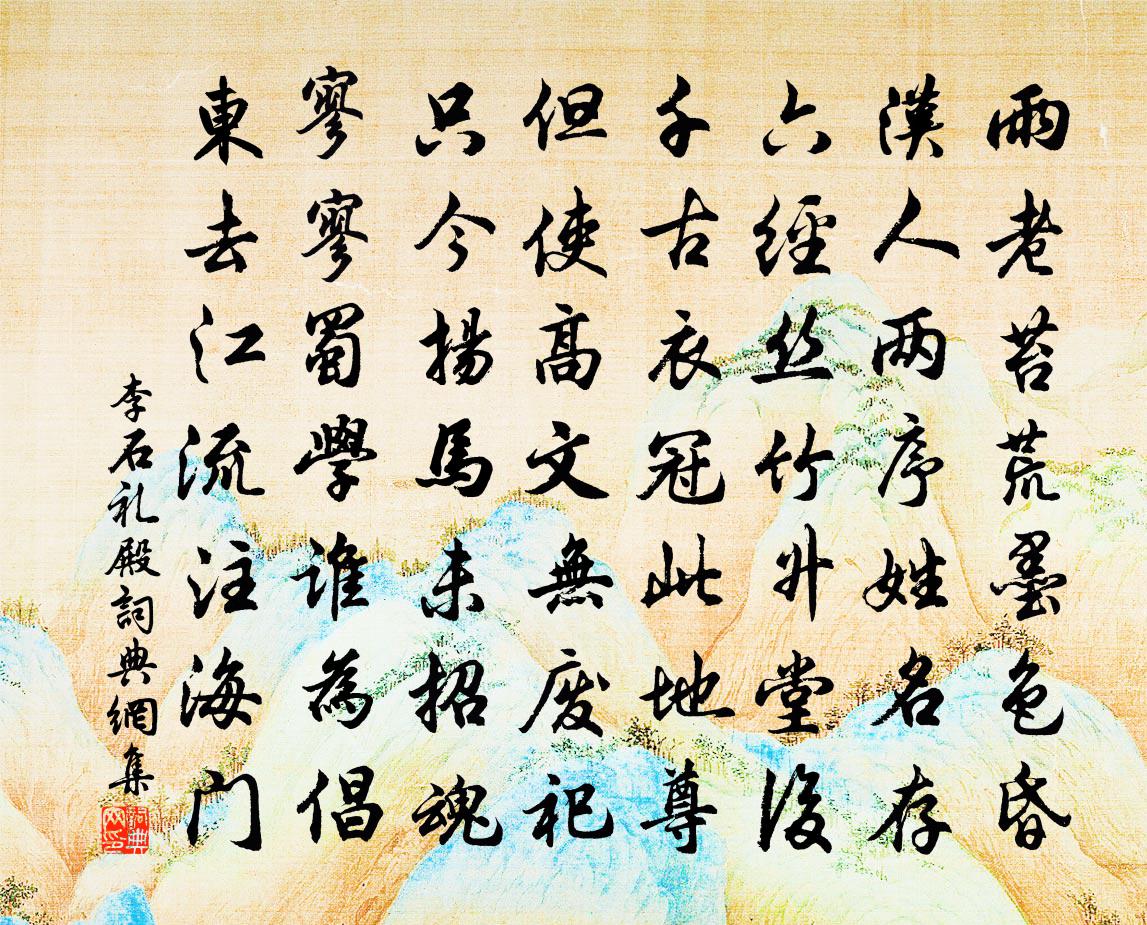 雨老苔荒墨色昏
漢人两序姓名存
六經丝竹升堂後
千古衣冠此地尊
但使高文無废祀
只今揚馬未招魂
寥寥蜀學誰為倡
東去江流注海门
李石礼殿詞典網集